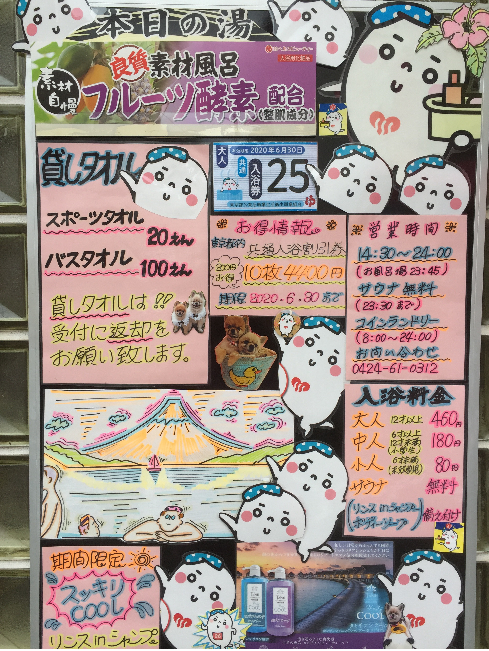 本日の湯
素材自慢
良質素材風呂
フルーツ酵素配合
(整肌成分)
貸しタオル
スポーツタオル
20えん
バスタオル
100えん
貸しタオルは!!
受付に返却を
お願い致します。
大人
2020年6月30日
共通
入浴券
25
お得情報
10枚4400円
2020.6.30まで
営業時間
14:30~24:00
(お風呂場23:45)
サウナ無料
(23:30まで)
コインランドリー
(8:00~24:00)
お問い合わせ
0424-61-0312
入浴料金
大人 12才以上 460円
中人 6才以上 12才未満 (小学生) 180円
小人 6才未満 (未就学児) 80円
サウナ 無料
(リンスinシャンプー
ボディーソープ) 備え付け
期間限定
スッキリ
COOL
リンスinシャンプー
COOL